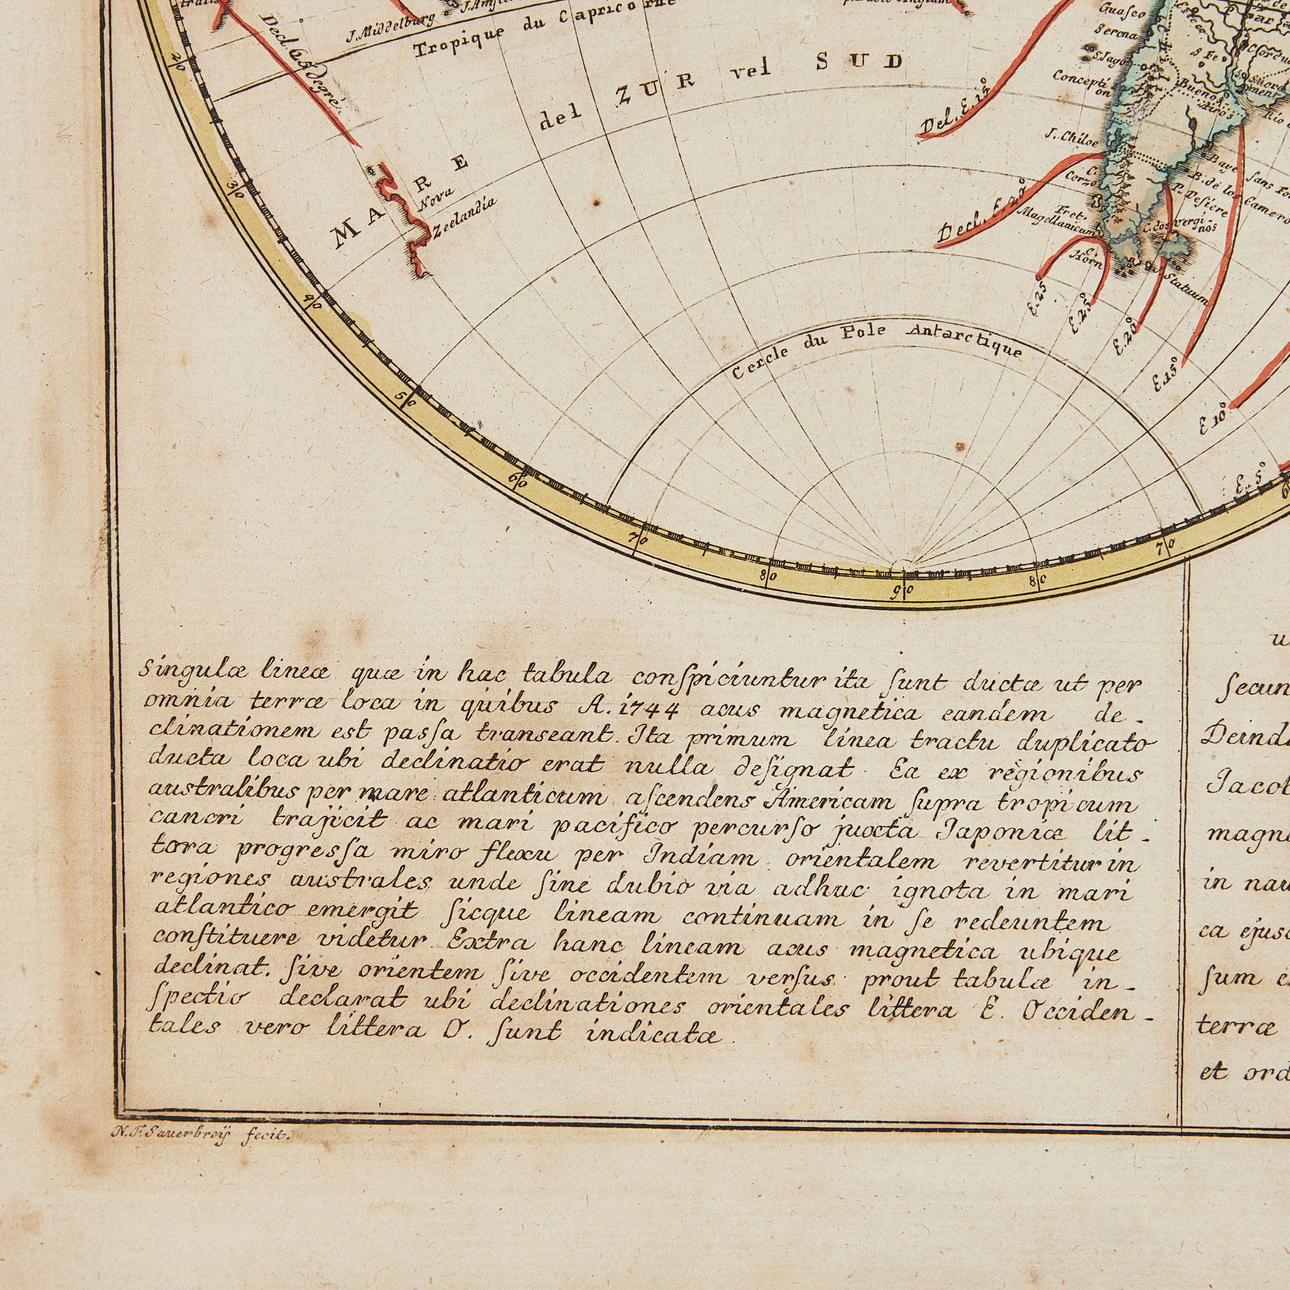 Decl 6.5 degre.
J. Middelburg
Tropique du Capricorne
MARE del ZUR vel SUD
Nova
Zeelandia
Del. E. 15°
Decl. E. 20°
Guasco
Serena
S. Jago
Concepti
on
J. Chiloe
C.
Corzo
Fret.
Magellanicum
C.
Horn
S. Fe
Buenos
Airos
Rio
Baye
sans fo
B. de los Camero
P. Desire
C. dos vergi
nos
Statuum
E. 25°
E. 25°
E. 20°
E. 15°
E. 10°
E. 5°
Cercle du Pole Antarctique
20
30
40
50
60
70
80
90
80
70
Singulæ lineæ quæ in hac tabula conſpiciuntur ita ſunt ductæ ut per
omnia terræ loca in quibus A. 1744 acus magnetica eandem de-
clinationem est paſſa transeant. Ita primum linea tractu duplicato
ducta loca ubi declinatio erat nulla deſignat. Ea ex regionibus
australibus per mare atlanticum aſcendens Americam ſupra tropicum
cancri trajicit ac mari pacifico percurſo juxta Japoniæ lit-
tora progresſa miro flexu per Indiam orientalem revertitur in
regiones australes unde ſine dubio via adhuc ignota in mari
atlantico emergit ſicque lineam continuam in ſe redeuntem
conſtituere videtur. Extra hanc lineam acus magnetica ubique
declinat. ſive orientem ſive occidentem verſus prout tabulæ in-
ſpectio declarat ubi declinationes orientales littera E. Occiden-
tales vero littera O. ſunt indicatæ.
u
ſecun
Deind
Jacob
magn
in nau
ca ejus
ſum e
terræ
et ord
N. F. Sauerbreij fecit.